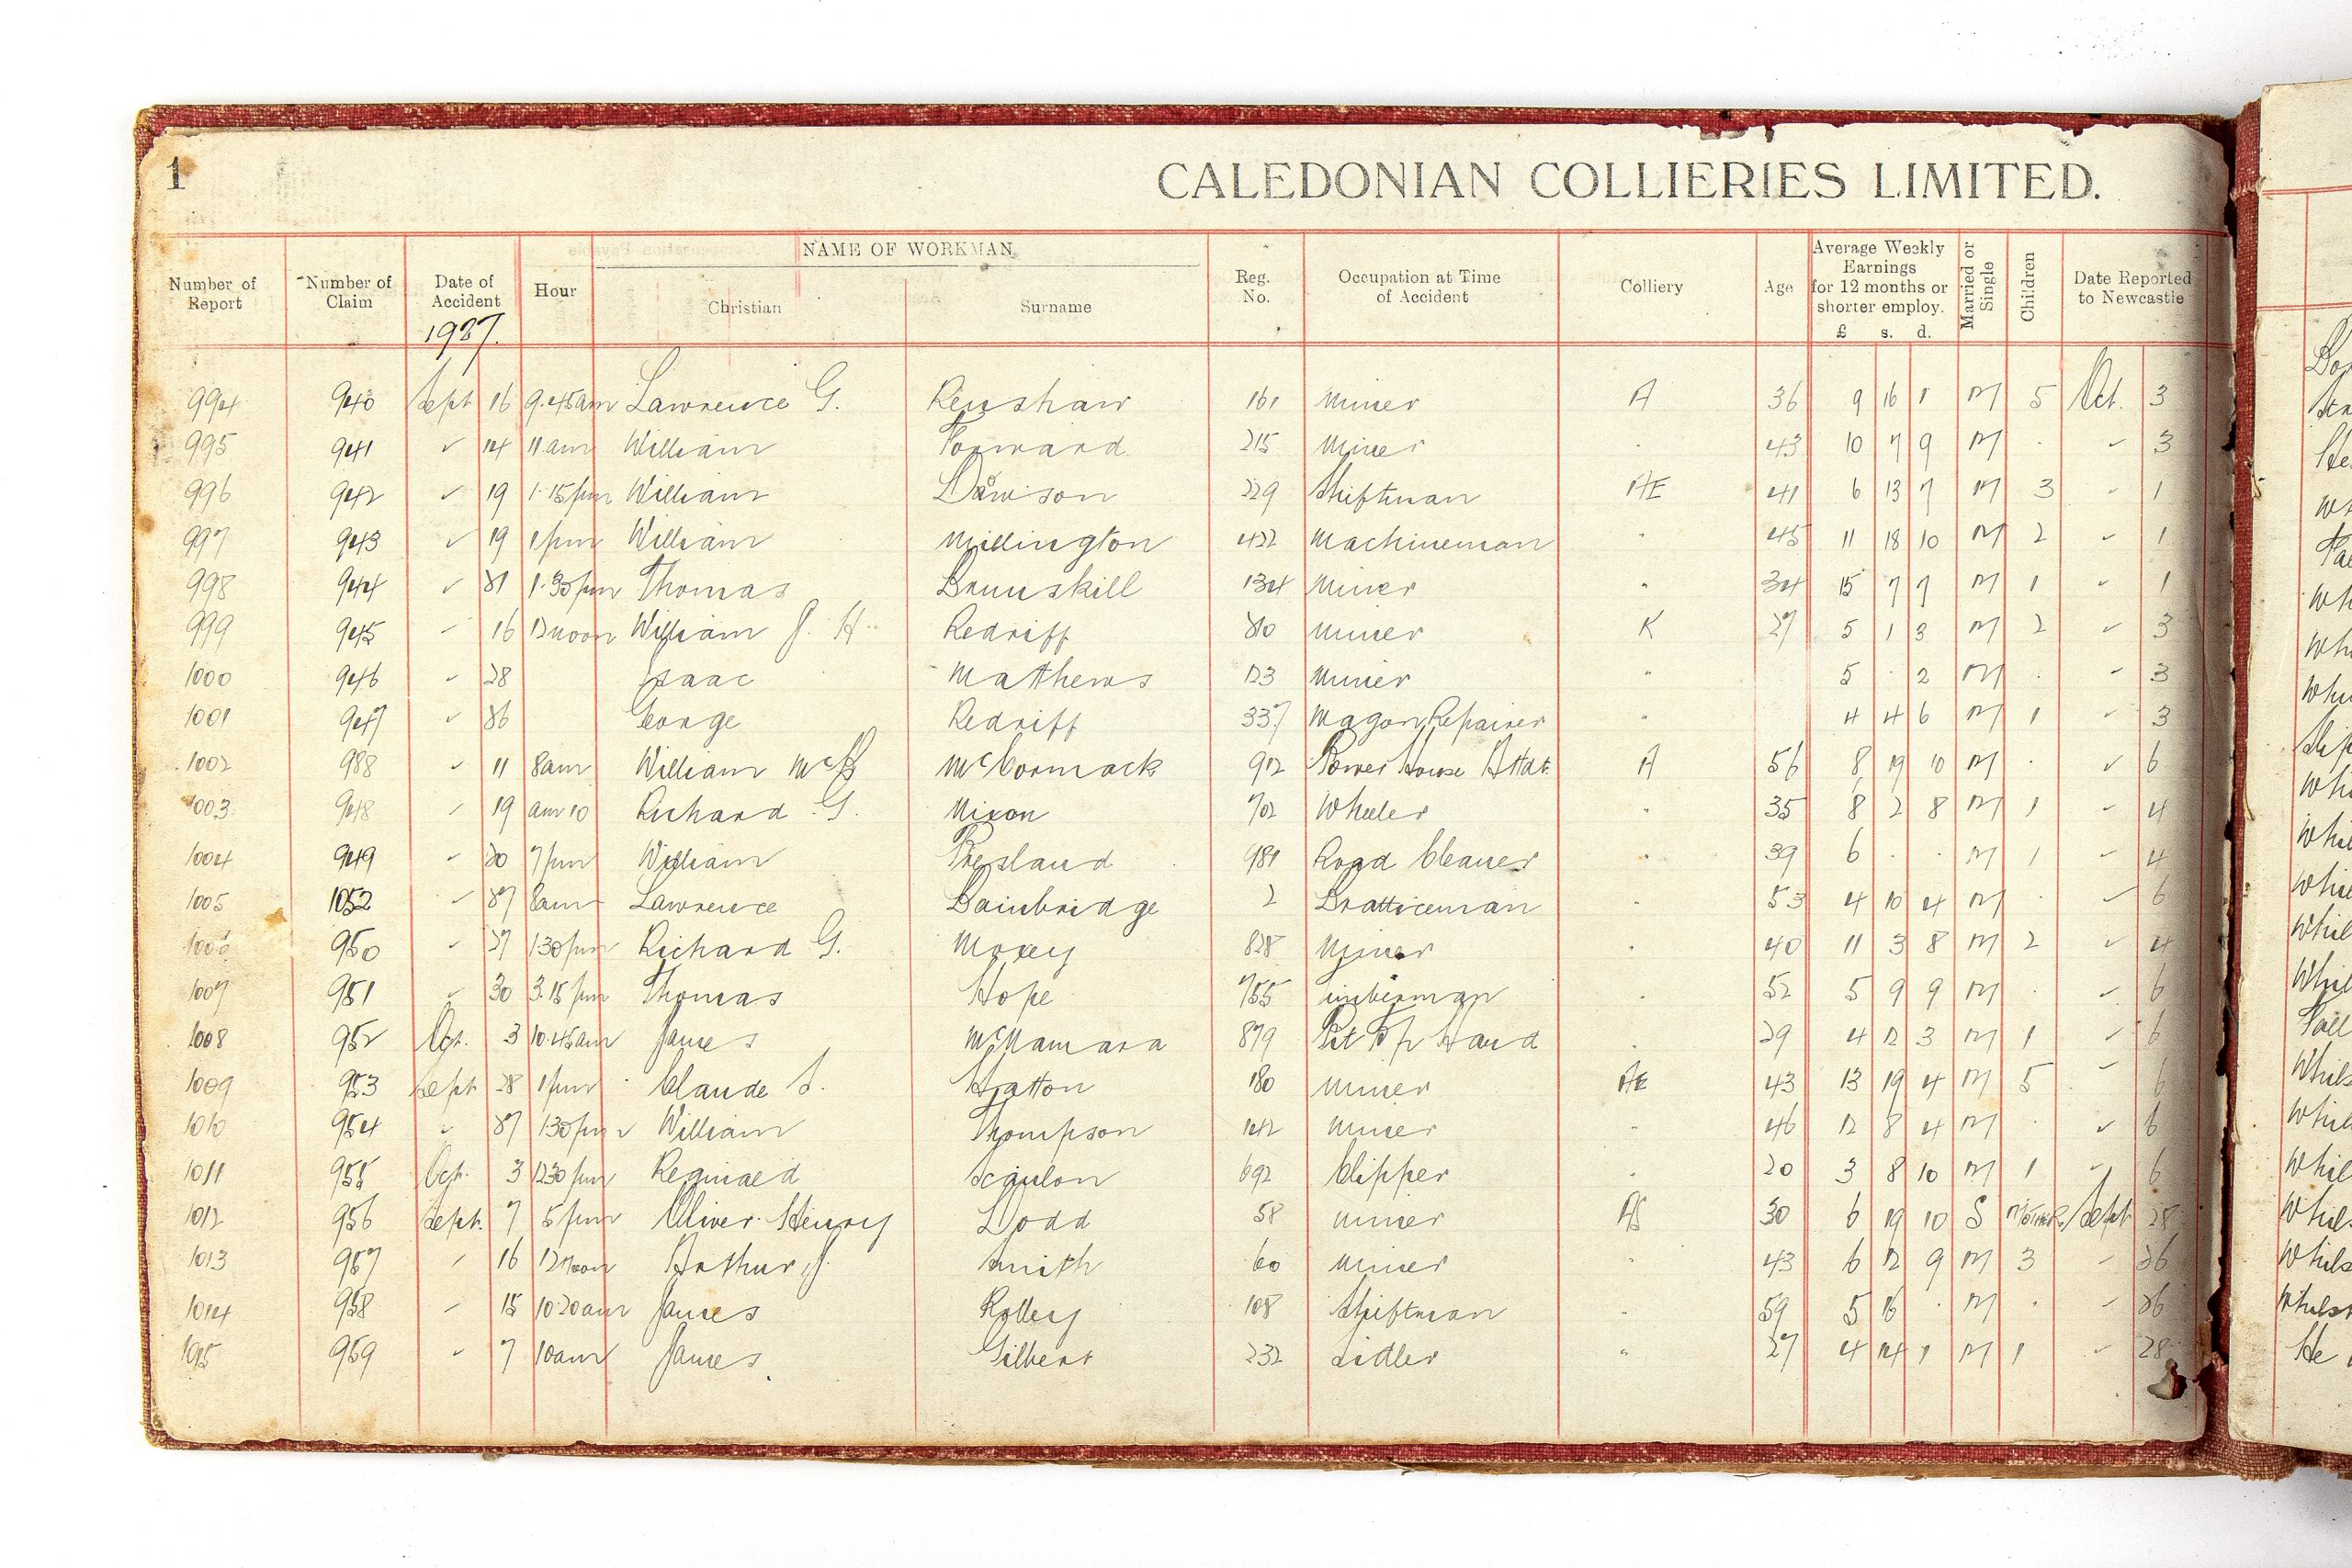 1
CALEDONIAN COLLIERIES LIMITED.
Number of Report Number of Claim Date of Accident Hour NAME OF WORKMAN Christian Surname Reg. No. Occupation at Time of Accident Colliery Age Average Weekly Earnings for 12 months or shorter employ. £ s. d. Married or Single Children Date Reported to Newcastle
1927.
994 940 Sept 16 9.45am Lawrence G. Renshaw 161 Miner A 36 9 16 1 M 5 Oct. 3
995 941 " 14 11am William Forward 215 Miner " 43 10 7 9 M . " 3
996 942 " 19 1.15pm William Dawson 229 Shiftman AE 41 6 13 7 M 3 " 1
997 943 " 19 1pm William Millington 422 Machineman " 45 11 18 10 M 2 " 1
998 944 " 21 1.30pm Thomas Brunskill 134 Miner " 34 15 7 7 M 1 " 1
999 945 " 16 12noon William J. H. Redriff 210 Miner K 27 5 1 3 M 2 " 3
1000 946 " 28 Isaac Mathews 123 Miner " 5 . 2 M . " 3
1001 947 " 26 George Redriff 337 Wagon Repairer " 4 4 6 M 1 " 3
1002 988 " 11 8am William McCormack 912 Power House Attdt A 56 8 19 10 M . " 6
1003 948 " 19 am 10 Richard G. Nixon 702 Wheeler " 35 8 2 8 M 1 " 4
1004 949 " 20 7pm William Presland 981 Road Cleaner " 39 6 . . M 1 " 4
1005 1052 " 27 8am Lawrence Bainbridge 2 Bratticeman " 53 4 10 4 M . " 6
1006 950 " 27 1.30pm Richard G. Moxey 828 Miner " 40 11 3 8 M 2 " 4
1007 951 " 30 3.15pm Thomas Hope 755 Timberman " 52 5 9 9 M . " 6
1008 952 Oct. 3 10.45am James McNamara 879 Pit Top Hand " 29 4 12 3 M 1 " 6
1009 953 Sept 28 1pm Claude S. Hatton 180 Miner AE 43 13 19 4 M 5 " 6
1010 954 " 27 1.30pm William Thompson 142 Miner " 46 12 8 4 M . " 6
1011 955 Oct. 3 12.30pm Reginald Scanlon 692 Clipper " 20 3 8 10 M 1 " 6
1012 956 Sept. 7 5pm Oliver Henry Dodd 58 Miner AS 30 6 19 10 S MOTHER Sept 28
1013 957 " 16 12noon Arthur J. Smith 60 Miner " 43 6 12 9 M 3 " 26
1014 958 " 15 10.20am James Rolley 108 Shiftman " 59 5 16 . M . " 26
1015 959 " 7 10am James Gilbert 232 Sidler " 27 4 14 1 M 1 " 28